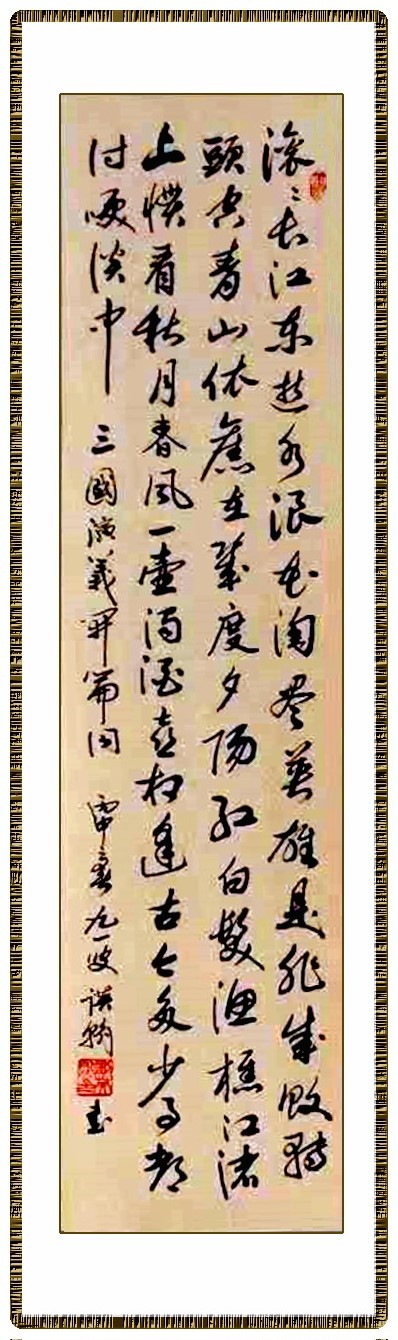 滚〻长江东逝水浪花淘尽英雄是非成败转
頭空青山依舊在幾度夕阳红白髮渔樵江渚
上惯看秋月春风一壶浊酒喜相逢古今多少事都
付笑谈中 三國演義开篇词 春九一叟 书